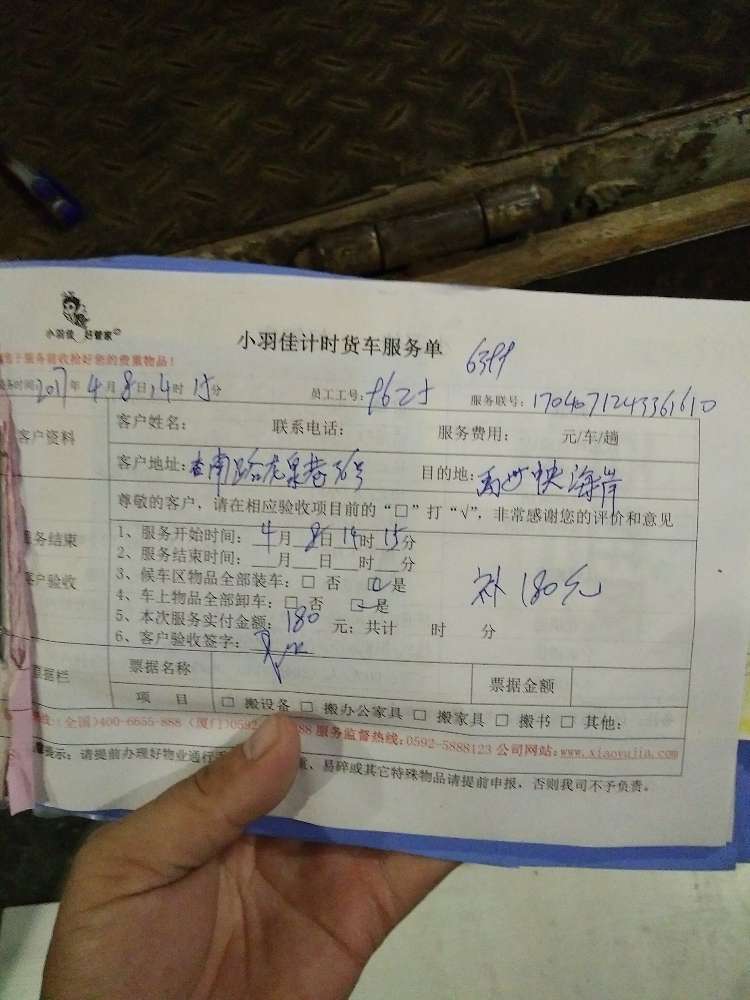 小羽佳 好管家
小羽佳计时货车服务单
6399
服务验收捡好您的贵重物品！
务时间:2017年4月8日14时15分 员工工号:9625 服务联号:1704071243361610
客户资料
客户姓名: 联系电话: 服务费用: 元/车/趟
客户地址: 南路 泉巷36号 目的地: 海岸
尊敬的客户，请在相应验收项目前的“□”打“√”，非常感谢您的评价和意见
务结束
户验收
1、服务开始时间: 4月8日14时15分
2、服务结束时间: 月 日 时 分
3、候车区物品全部装车: □ 否 □是
4、车上物品全部卸车: □ 否 □是
补180元
5、本次服务实付金额: 180 元; 共计 时 分
6、客户验收签字:
票据栏
票据名称 票据金额
项 目 □ 搬设备 □ 搬办公家具 □ 搬家具 □ 搬书 □ 其他:
(全国)400-6655-888 (厦门)0592- 88 服务监督热线:0592-5888123 公司网站:www.xiaoyujia.com
提示: 请提前办理好物业通行 、易碎或其它特殊物品请提前申报，否则我司不予负责。